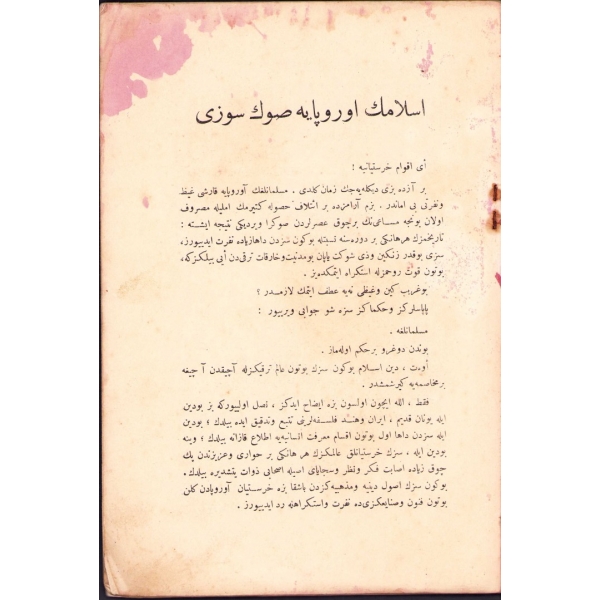 اسلامك اوروپایه صوك سوزی
أی اقوام خرستیانیه :
بر آزده بزی دیكله‌یه‌جك زمان كلدی . مسلمانلغك آوروپایه قارشی غیظ
ونفرتی بی اماندر . بزم آرامزده بر ائتلاف حصوله كتیرمك املیله مصروف
اولان بونجه مساعینك برچوق عصرلردن صوكرا ویردیكی نتیجه ایشته :
تاریخمزك هر هانكی بر دوره‌سنه نسبتله بوكون سزدن داهازیاده نفرت ایدییورز،
سزی بوقدر زنكین وذی شوكت یاپان بومدنیت وخارقات ترقی‌دن أیی بیلكزكه،
بوتون قوت روحمزله استكراه ایتمكده‌یز .
بوغریب كین وغیظی نه‌یه عطف ایتمك لازمدر ؟
پاپاسلركز وحكماكز سزه شو جوابی ویرییور :
مسلمانلغه .
بوندن دوغرو بر حكم اوله‌ماز .
أوت ، دین اسلام بوكون سزك بوتون عالم ترقیكزله آچیقدن آ چیغه
برمخاصمه‌یه كیرشمشدر .
فقط ، الله ایچون اولسون بزه ایضاح ایدكز ، نصل اولییوركه بز بودین
ایله یونان قدیم ، ایران وهند فلسفه‌لرینی تتبع وتدقیق ایده بیلدك ؛ بودین
ایله سزدن داها اول بوتون اقسام معرفت انسانیه‌یه اطلاع قازانه بیلدك ؛ وینه
بودین ایله ، سزك خرستیانلق عالمكزك هر هانكی بر حواری وعزیزندن پك
چوق زیاده اصابت فكر ونظر وسجایای اصیله اصحابی ذوات یتشدیره بیلدك .
بوكون سزك اصول دینیه ومذهبیه‌كزدن باشقا بزه خرستیان آوروپادن كلن
بوتون فنون وصنایعكزی‌ده نفرت واستكراهله رد ایدییورز .